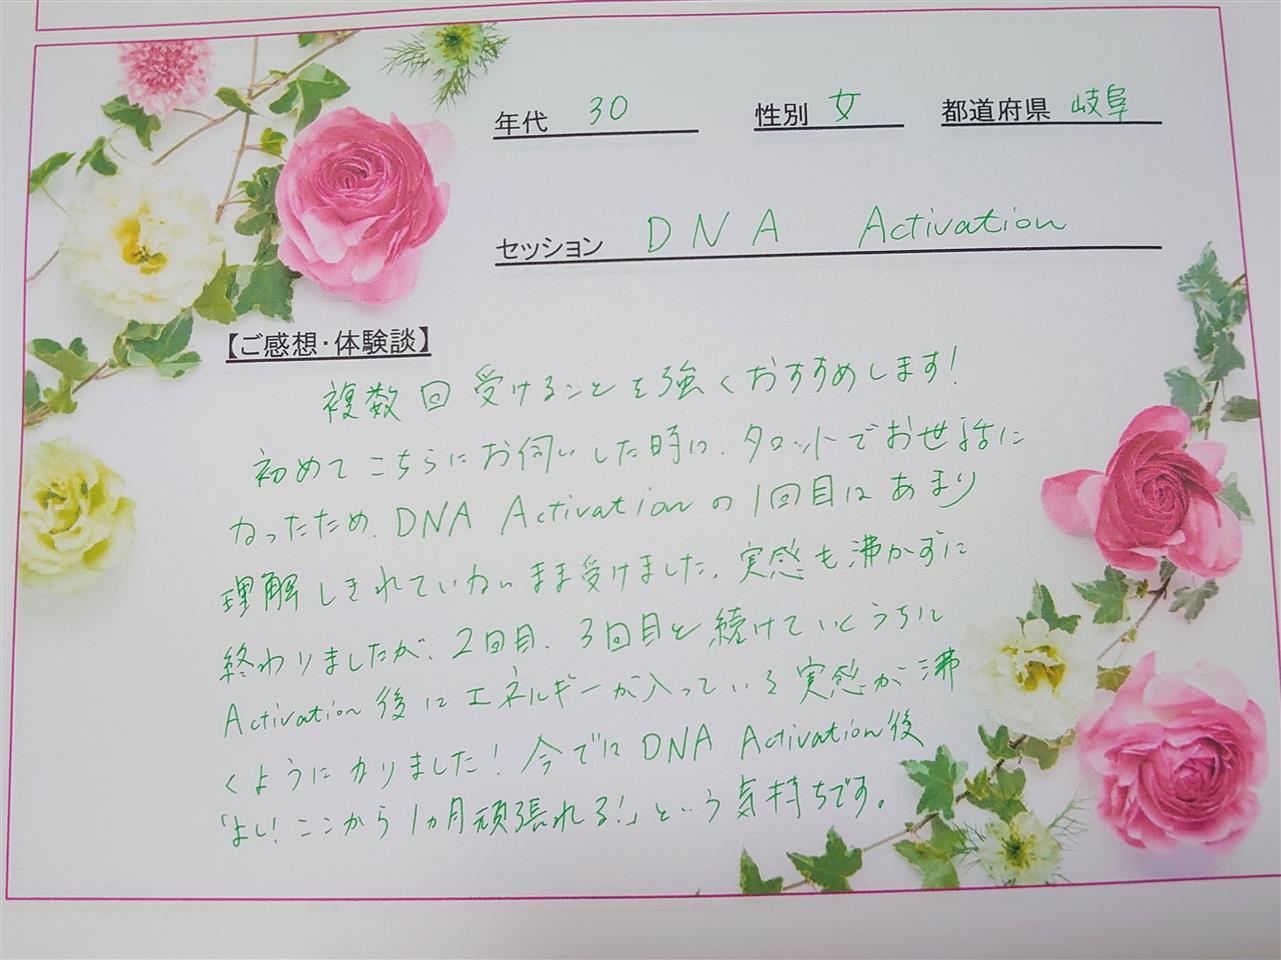 年代 30 性別 女 都道府県 岐阜
セッション DNA Activation
【ご感想・体験談】
複数回受けることを強くおすすめします!
初めてこちらにお伺いした時に、タロットでお世話に
なったため、DNA Activationの1回目はあまり
理解しきれていないまま受けました。実感も沸かずに
終わりましたが、2回目、3回目と続けていくうちに
Activation後にエネルギーが入っている実感が沸
くようになりました!今ではDNA Activation後
「よし!ここから1ヵ月頑張れる!」という気持ちです。